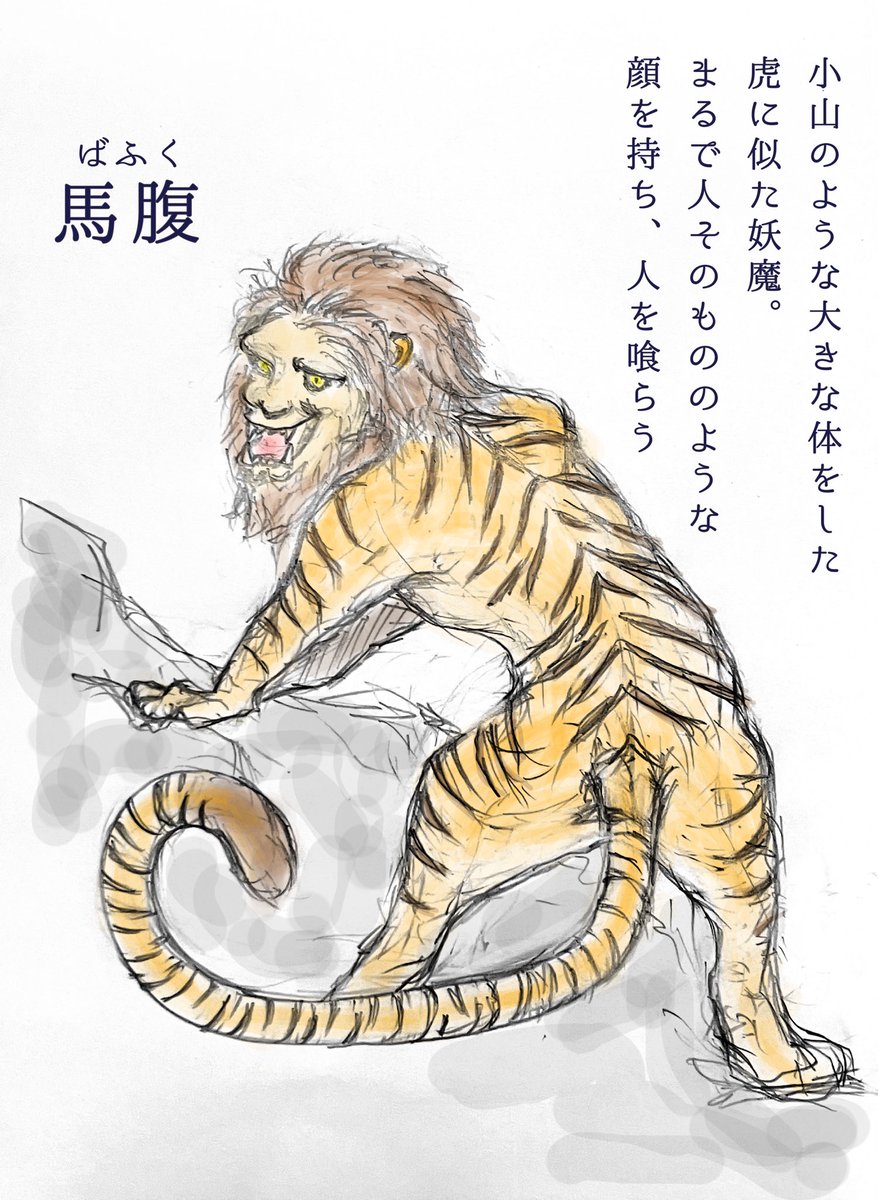 小山のような大きな体をした
虎に似た妖魔。
まるで人そのもののような
顔を持ち、人を喰らう
ばふく
馬腹